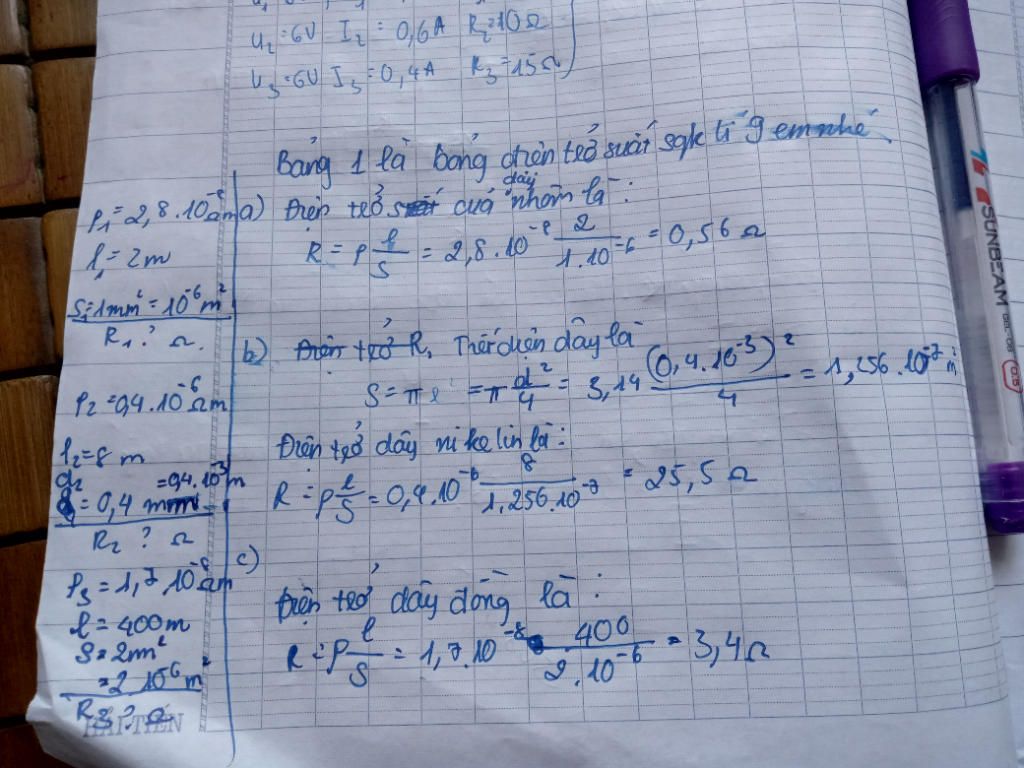 U₂=6V I₂=0,6A R₂=10Ω
U₃=6V I₃=0,4A R₃=15Ω
Bảng 1 là bảng điện trở suất sgk tr 9 em nhé
ρ₁=2,8.10⁻⁸Ωm
l₁=2m
S₁=1mm²=10⁻⁶m²
R₁? Ω.
a) Điện trở của dây nhôm là:
R=ρ l/S = 2,8.10⁻⁸ 2/1.10⁻⁶ = 0,56 Ω
ρ₂=0,4.10⁻⁶Ωm
l₂=8 m
d₂=0,4 mm=0,4.10⁻³m
R₂ ? Ω
b) Tiết diện dây là
S=πr²=π d²/4 = 3,14 (0,4.10⁻³)²/4 = 1,256.10⁻⁷m²
Điện trở dây nikelin là:
R=ρ l/S = 0,4.10⁻⁶ 8/1,256.10⁻⁷ = 25,5 Ω
ρ₃=1,7 10⁻⁸Ωm
l=400m
S=2m²
=2 10⁻⁶m²
R₃ ? Ω
c)
Điện trở dây đồng là:
R=ρ l/S = 1,7.10⁻⁸ 400/2.10⁻⁶ = 3,4Ω
HẢI TIẾN
SUNBEAM
0.5